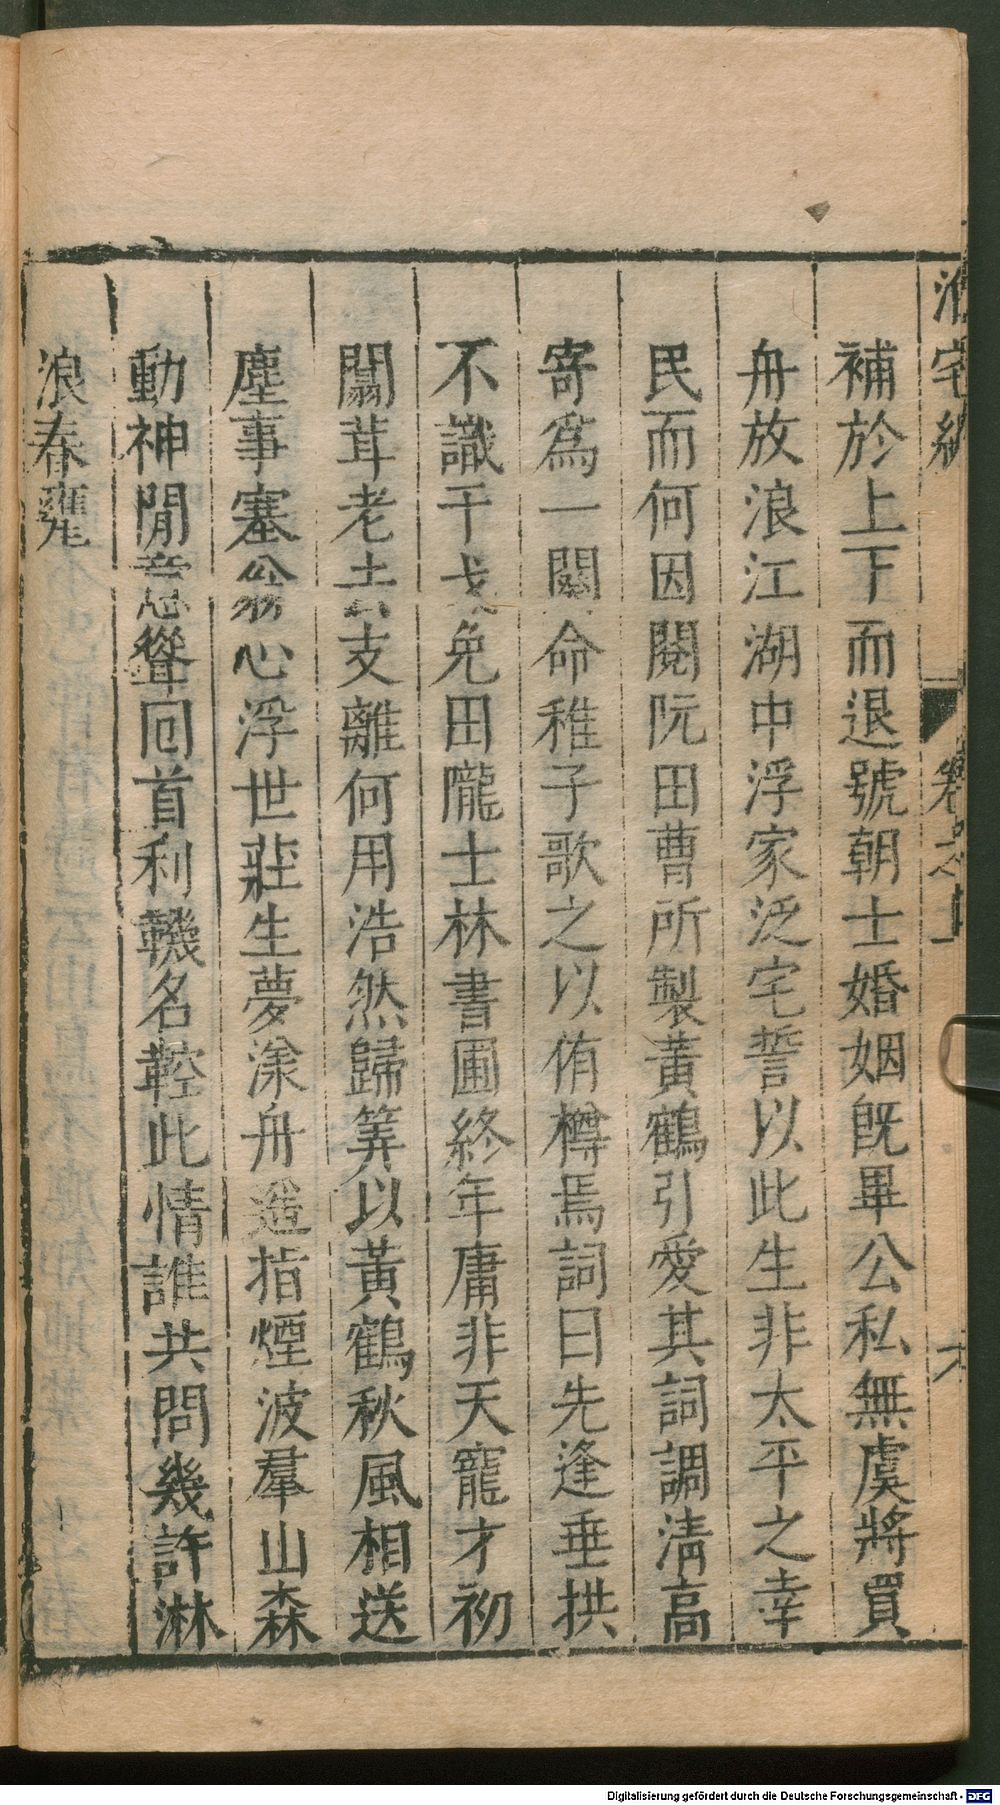 補於上下而退號朝士婚姻旣畢公私無虞將買
舟放浪江湖中浮家泛宅誓以此生非太平之幸
民而何因閱阮田曹所製黃鶴引愛其詞調淸高
寄爲一闋命稚子歌之以侑樽焉詞曰先逢垂拱
不識干戈免田隴士林書圃終年庸非天寵才初
闒茸老去支離何用浩然歸筭以黃鶴秋風相送
塵事塞翁心浮世莊生夢漾舟遥指煙波羣山森
動神閒意聳囘首利鞿名鞚此情誰共問幾許淋
浪春甕
宅編
卷之十
六
Digitalisierung gefördert durch die Deutsche Forschungsgemeinschaft - DFG